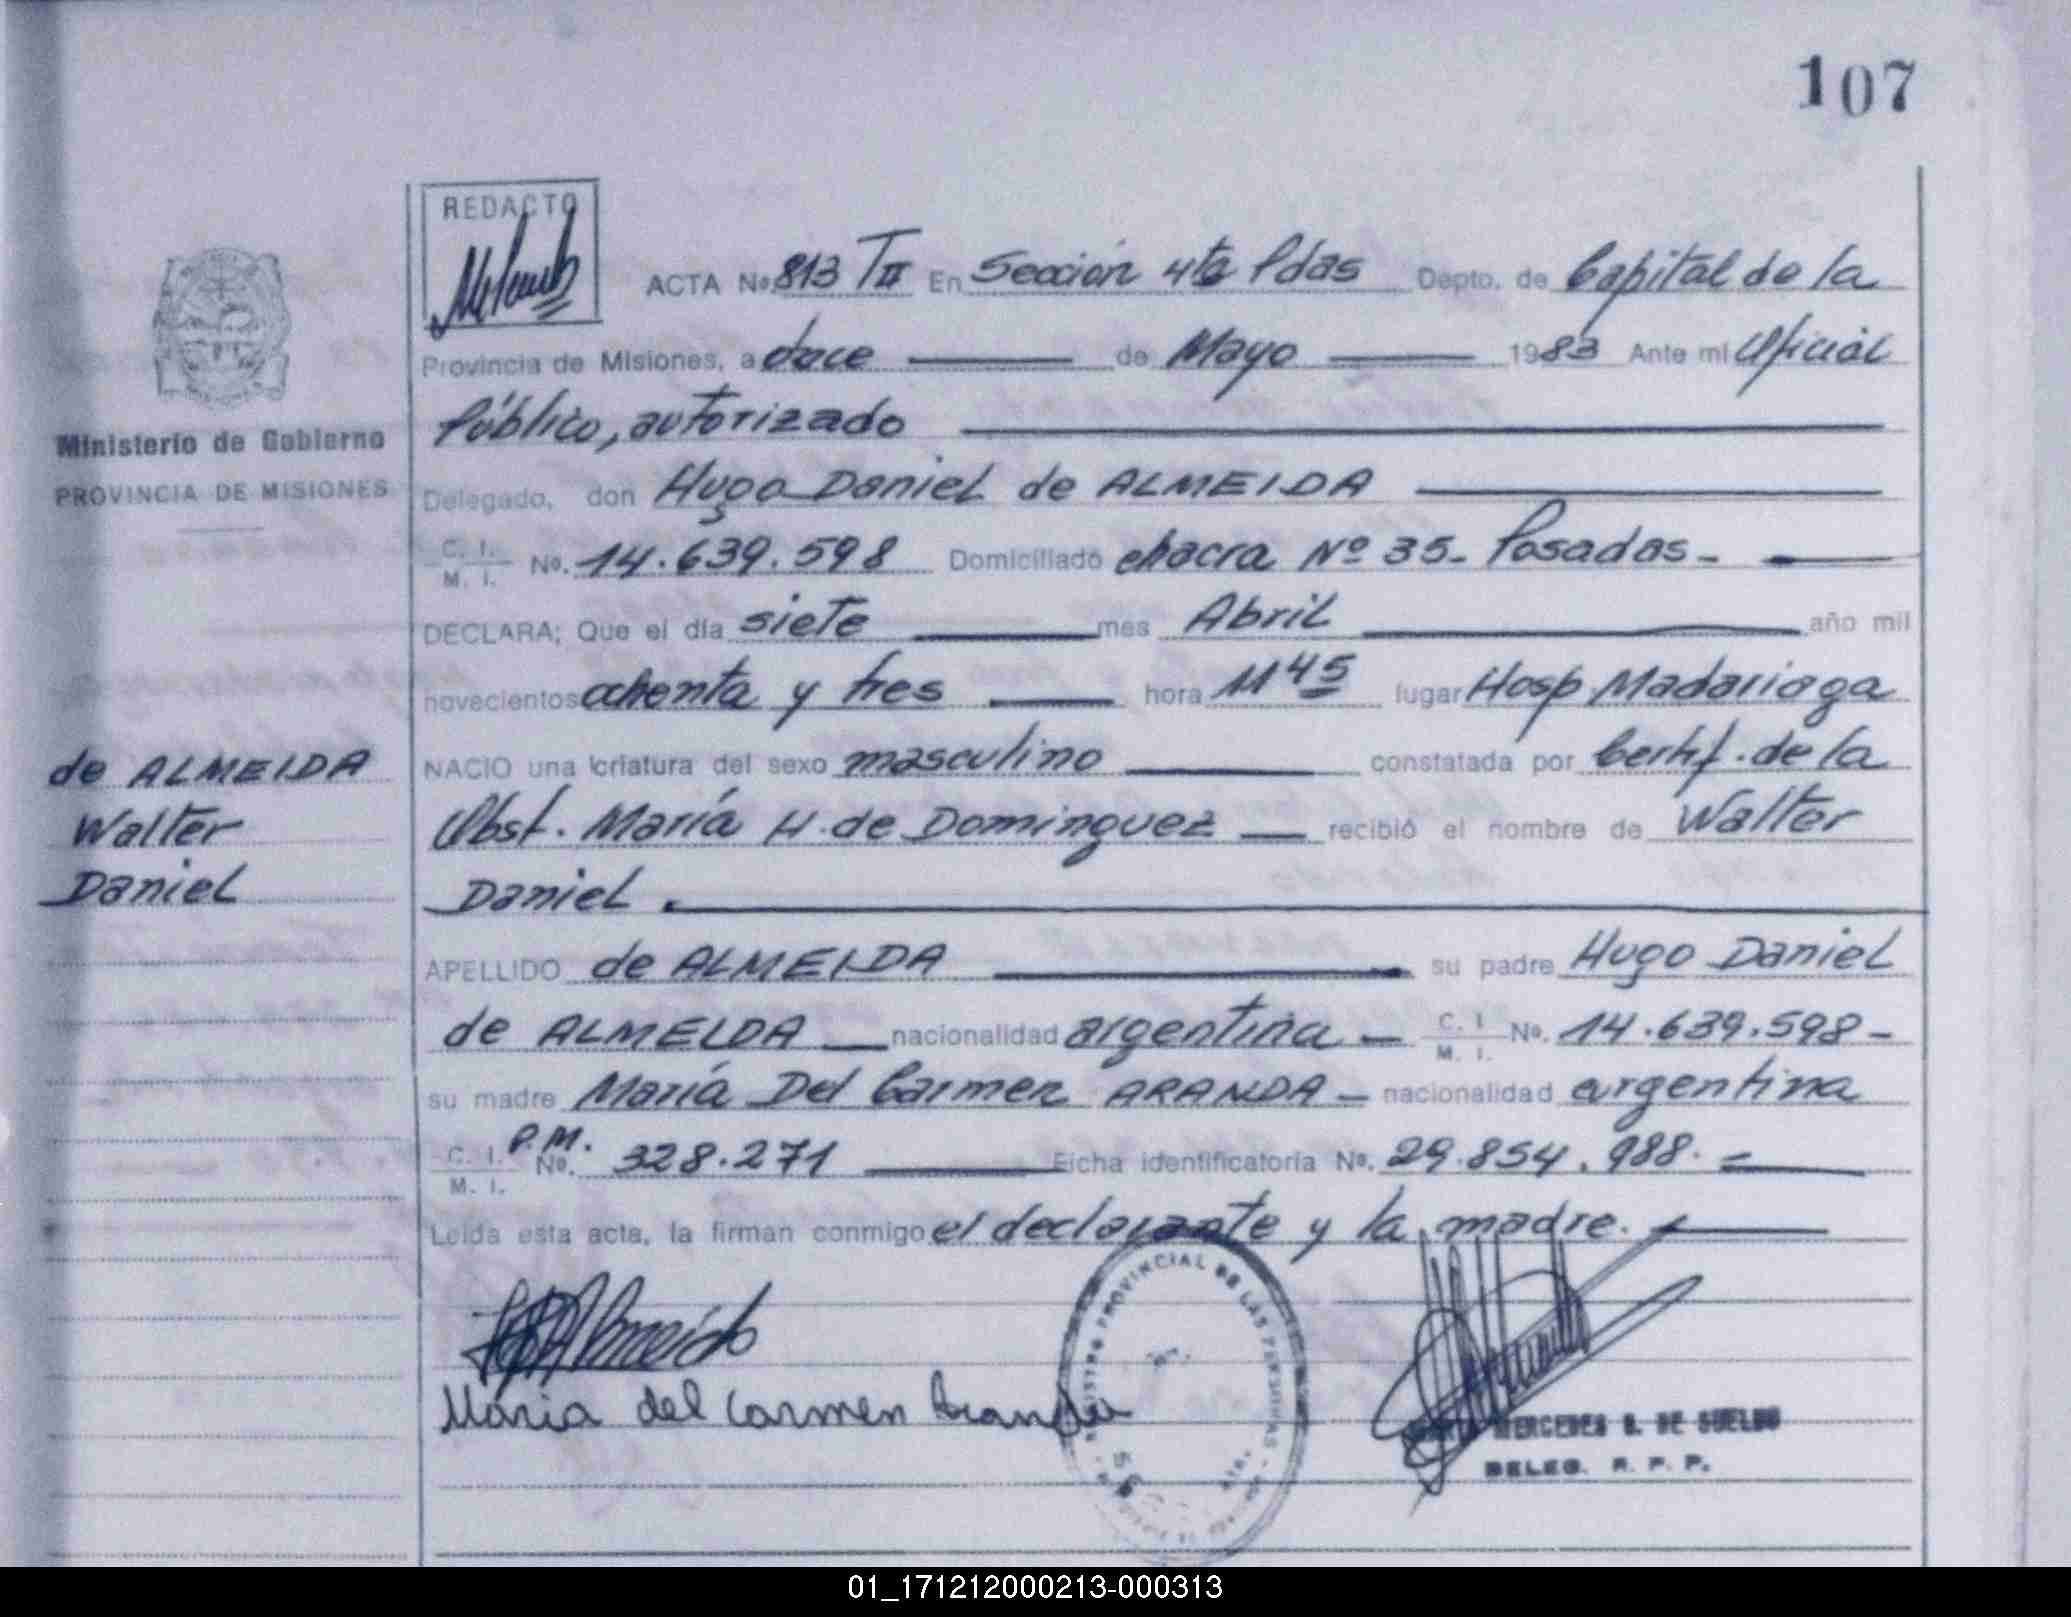 107
REDACTO
ACTA No. 813 T II En Sección 4ta Pdas Depto. de Capital de la
Provincia de Misiones, a doce de Mayo 1983 Ante mi Oficial
Público, autorizado
Ministerio de Gobierno
PROVINCIA DE MISIONES
Delegado, don Hugo Daniel de ALMEIDA
C. I. M. I. No. 14.639.598 Domiciliado chacra Nº 35- Posadas-
DECLARA; Que el día siete mes Abril año mil
novecientos ochenta y tres hora 11 45 lugar Hosp. Madariaga
de ALMEIDA
Walter
Daniel
NACIO una criatura del sexo masculino constatada por Certif. de la
Obst. María H. de Dominguez recibió el nombre de Walter
Daniel.
APELLIDO de ALMEIDA su padre Hugo Daniel
de ALMEIDA nacionalidad argentina - C. I. M. I. No. 14.639.598-
su madre María Del Carmen ARANDA - nacionalidad argentina
C. I. M. I. P.M. No. 328.271 Ficha identificatoria No. 29.854.988.-
Leída esta acta, la firman conmigo el declarante y la madre.
María del Carmen Aranda
REGISTRO PROVINCIAL DE LAS PERSONAS
MERCEDES B. DE SUELDO
DELEG. R. P. P.
01_171212000213-000313